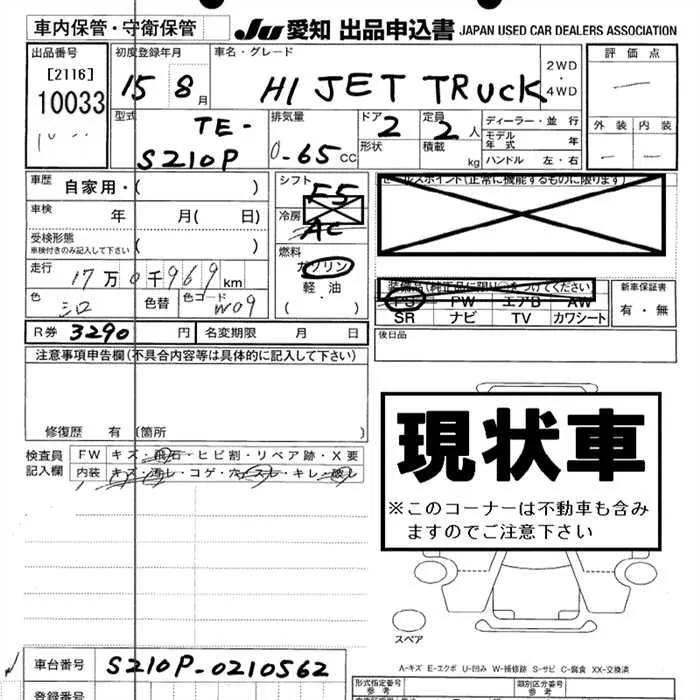 車内保管・守衛保管 JU 愛知 出品申込書 JAPAN USED CAR DEALERS ASSOCIATION
出品番号 初度登録年月 車名・グレード 2WD・4WD 評価点
[2116]
10033 15 8月 HI JET TRUCK
型式 排気量 ドア 定員 ディーラー・並行 外装 内装
TE- 2 2人 モデル年式 年
S210P 0-65cc 形状 積載 kg ハンドル 左・右
車歴 自家用・( ) シフト F5
車検 年 月( 日) 冷房 AC
受検形態 車検付きのみ記入して下さい ( ) 燃料 ガソリン
走行 17万0千969km 軽・油
色 シロ 色替 色コード W09 ( )
セールスポイント(正常に機能するものに限ります)
装備品(純正品に限り○をつけてください) 新車保証書
PS PW エアB AW 有・無
SR ナビ TV カワシート
R券 3290円 名変期限 月 日 後日品
注意事項申告欄(不具合内容等は具体的に記入して下さい)
修復歴 有(箇所 )
検査員記入欄 FW キズ・飛石・ヒビ割・リペア跡・X要
内装 キズ・汚レ・コゲ・穴・スレ・キレ・破レ
現状車
※このコーナーは不動車も含み
ますのでご注意下さい
スペア
A-キズ E-エクボ U-凹み W-補修跡 S-サビ C-腐食 XX-交換済
車台番号 S210P-0210562 形式指定番号 参考 類別区分番号 参考